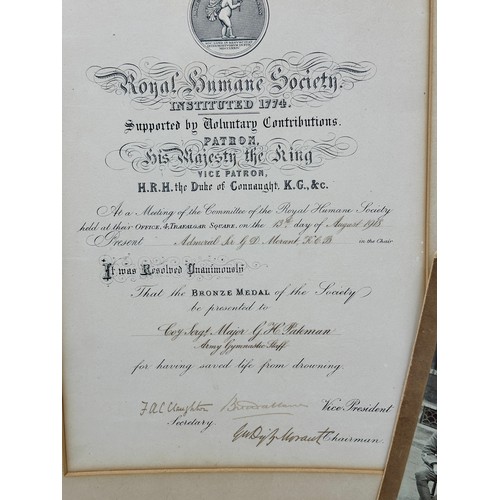 Royal Humane Society.
INSTITUTED 1774.
Supported by Voluntary Contributions.
PATRON,
His Majesty the King
VICE PATRON,
H.R.H. the Duke of Connaught, K.G., &c.
At a Meeting of the Committee of the Royal Humane Society
held at their Office, 4, Trafalgar Square, on the 13th day of August 1918
Present Admiral Sir G D. Morant, K.C.B in the Chair
It was Resolved Unanimously
That the BRONZE MEDAL of the Society
be presented to
Coy Sergt Major G. H. Pakman
Army Gymnastic Staff
for having saved life from drowning.
F A C Claughton Vice President
Secretary.
Morant Chairman.